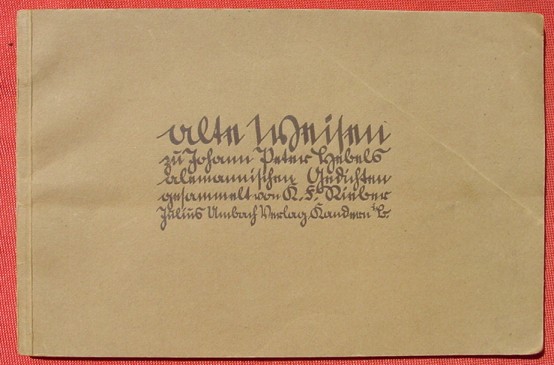 alte Weisen
zu Johann Peter Hebels
alemannischen Gedichten
gesammelt von K. F. Rieber
Julius Umbach Verlag Kandern i. B.